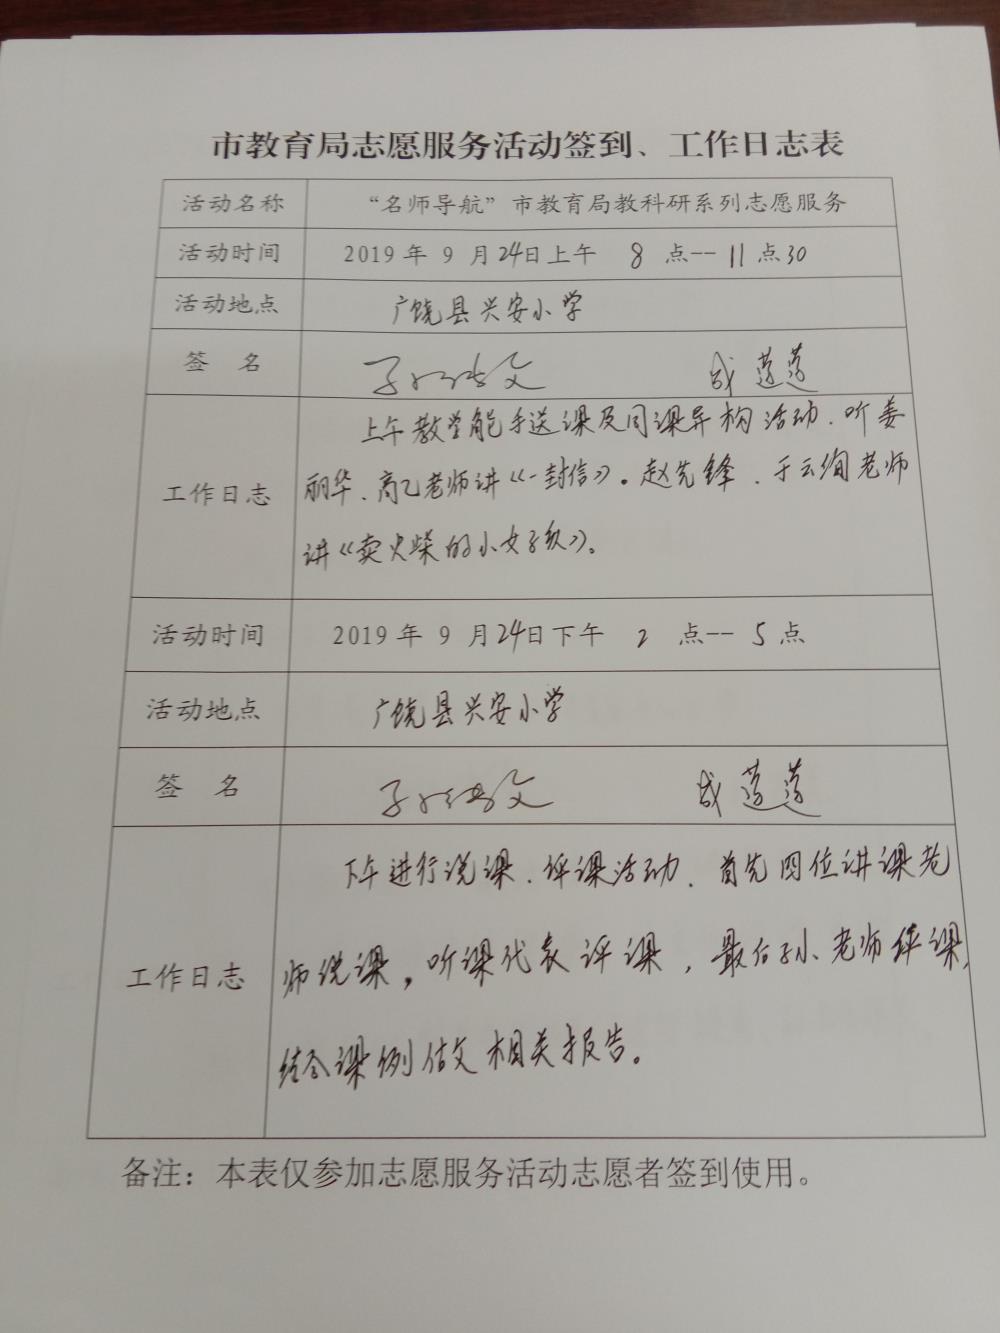 市教育局志愿服务活动签到、工作日志表
活动名称 “名师导航”市教育局教科研系列志愿服务
活动时间 2019 年 9 月 24日上午 8 点--11点30
活动地点 广饶县兴安小学
签 名 成莲莲
上午教学能手送课及同课异构活动.听姜
工作日志 丽华、高乙老师讲《一封信》。赵先锋、于云绚老师
讲《卖火柴的小女孩》。
活动时间 2019 年 9 月 24日下午 2 点--5点
活动地点 广饶县兴安小学
签 名 成莲莲
下午进行说课、评课活动、首先四位讲课老
工作日志 师说课,听课代表评课,最后 老师评课,
结合课例做 相关报告。
备注：本表仅参加志愿服务活动志愿者签到使用。